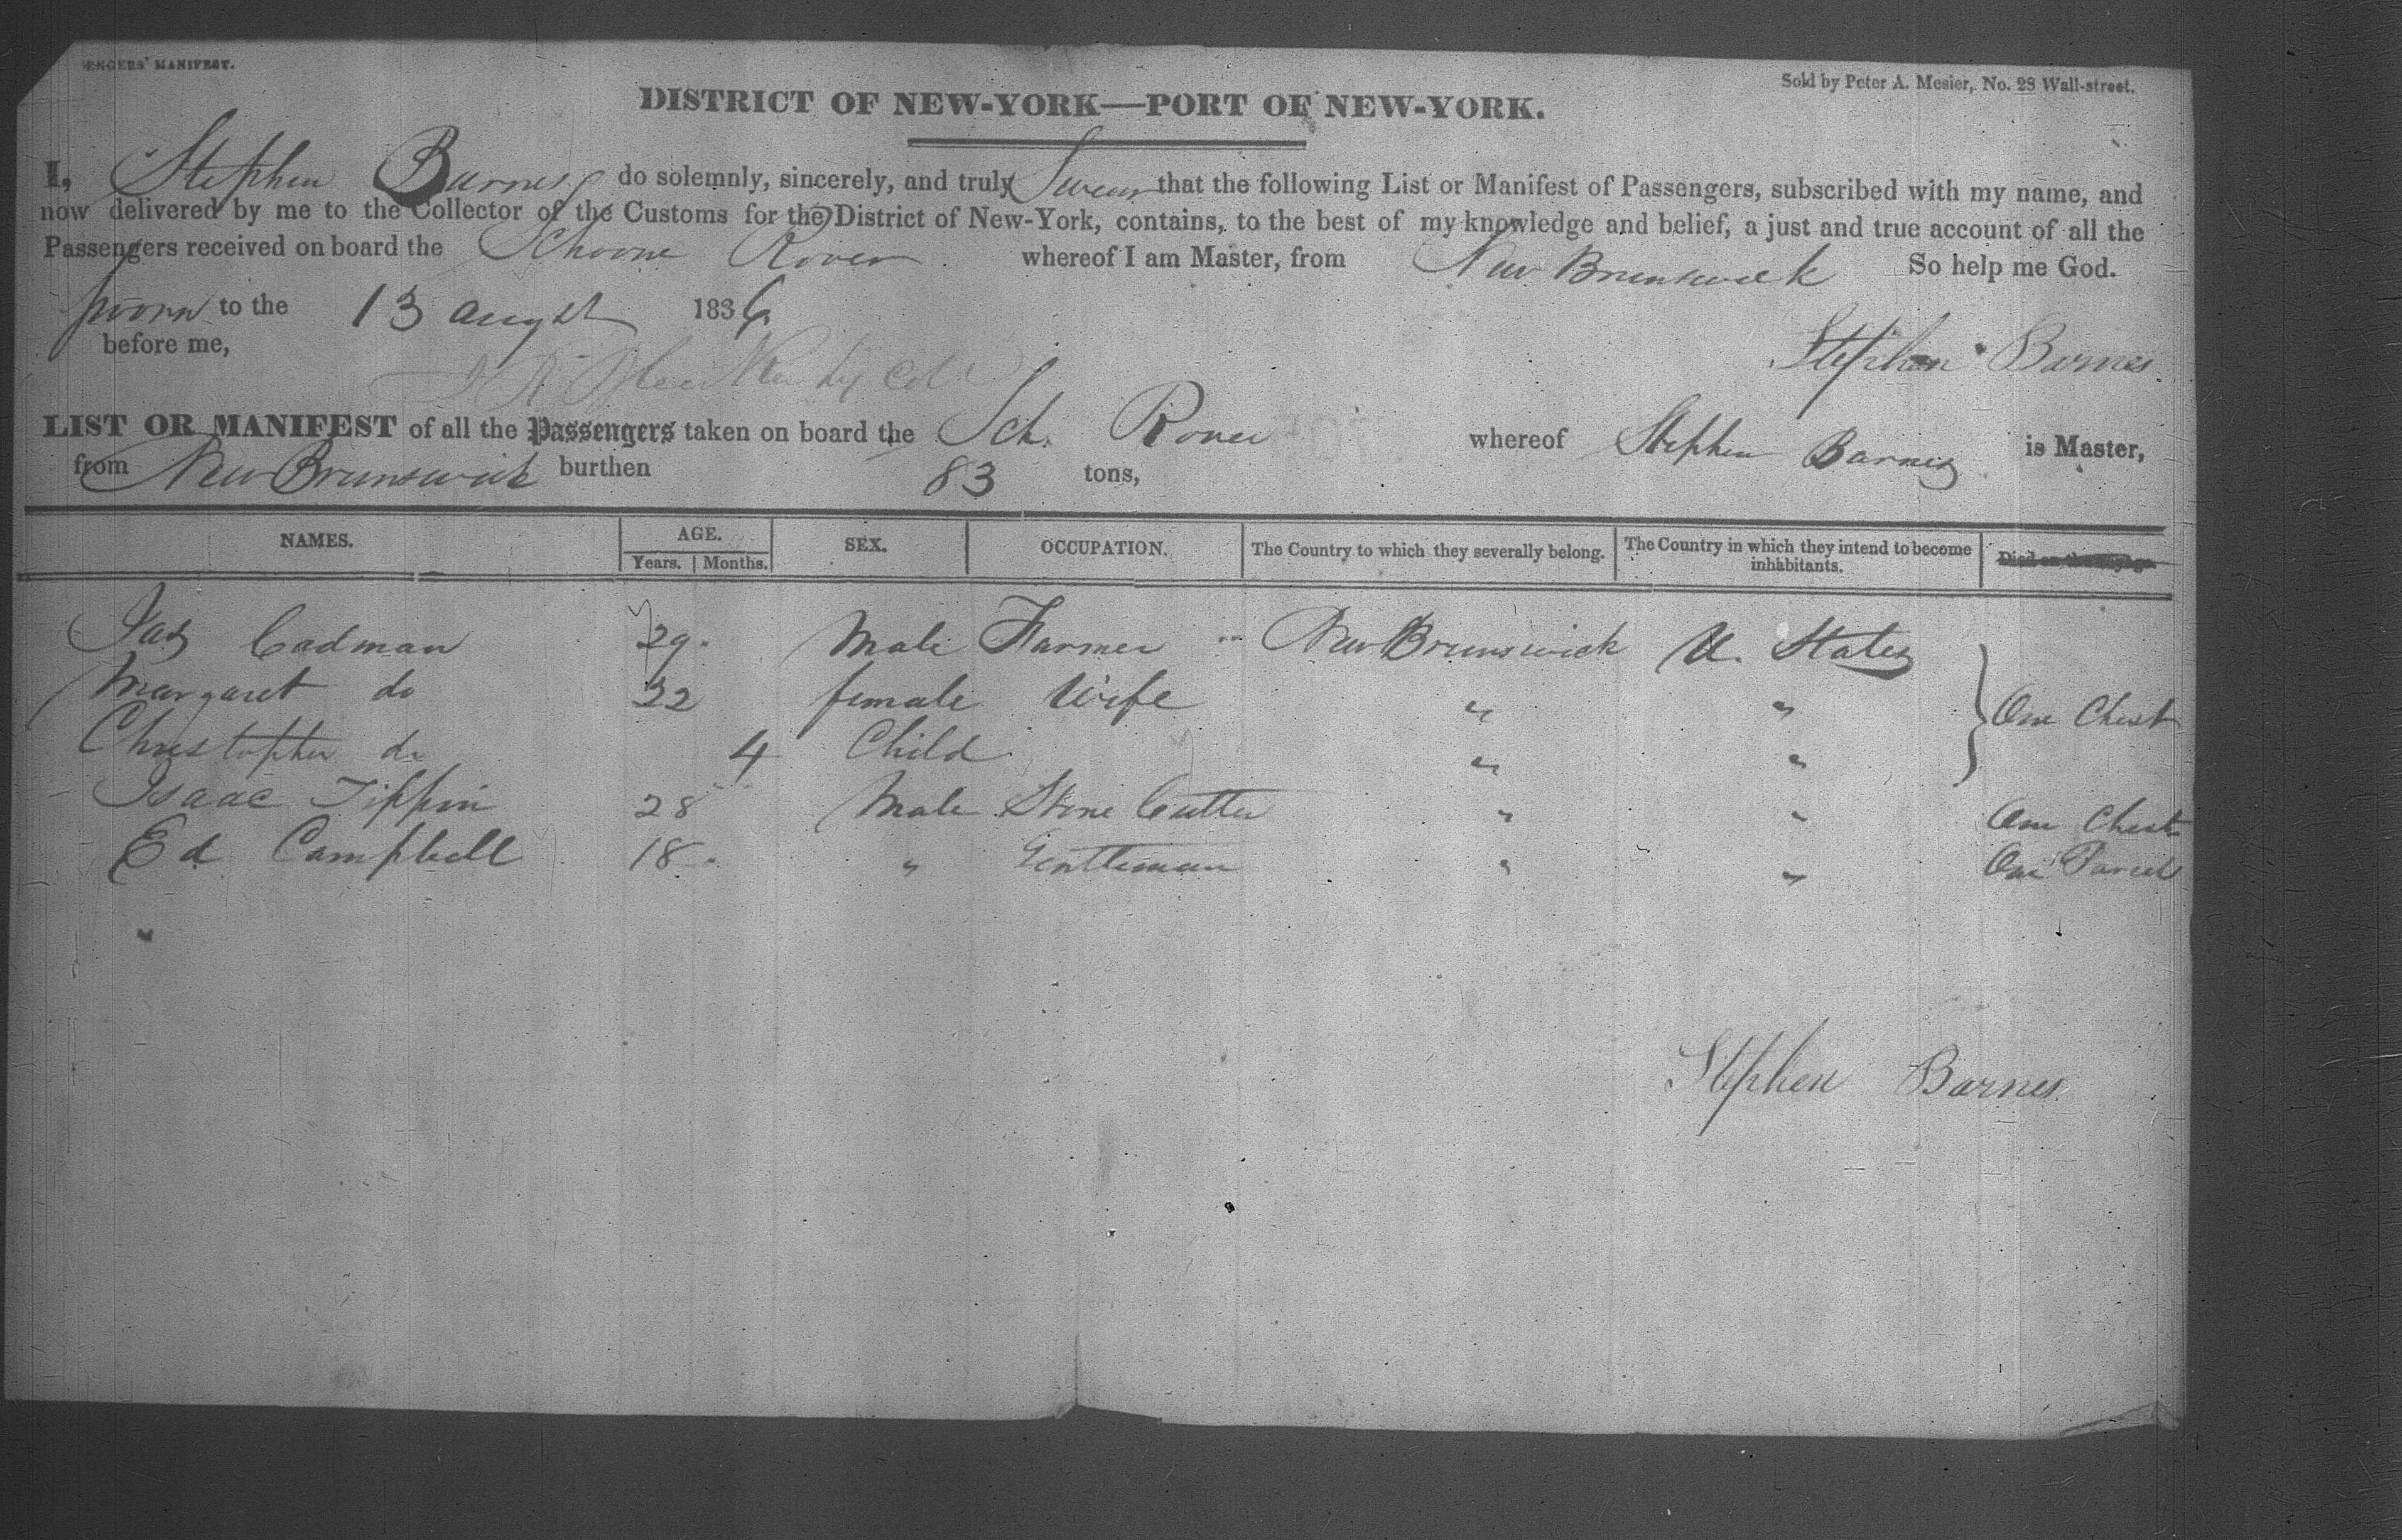 ENGERS' MANIFEST.
Sold by Peter A. Mesier, No. 28 Wall-street.
DISTRICT OF NEW-YORK—PORT OF NEW-YORK.
I, Stephen Barnes do solemnly, sincerely, and truly Swear that the following List or Manifest of Passengers, subscribed with my name, and
now delivered by me to the Collector of the Customs for the District of New-York, contains, to the best of my knowledge and belief, a just and true account of all the
Passengers received on board the Schoone Rover whereof I am Master, from New Brunswick So help me God.
sworn to the 13 august 1836
before me, Stephen Barnes
LIST OR MANIFEST of all the Passengers taken on board the Sch. Rover whereof Stephen Barnes is Master,
from New Brunswick burthen 83 tons,
NAMES. AGE. SEX. OCCUPATION. The Country to which they severally belong. The Country in which they intend to become inhabitants. Died on the voyage
Years. Months.
Jas Cadman 29. Male Farmer New Brunswick U. States
Margaret do 22 female Wife " " One Chest
Christopher do 4 Child " "
Isaac Tippin 28 Male Stone Cutter " " One Chest
Ed Campbell 18. " Gentleman " " One Parcel
Stephen Barnes